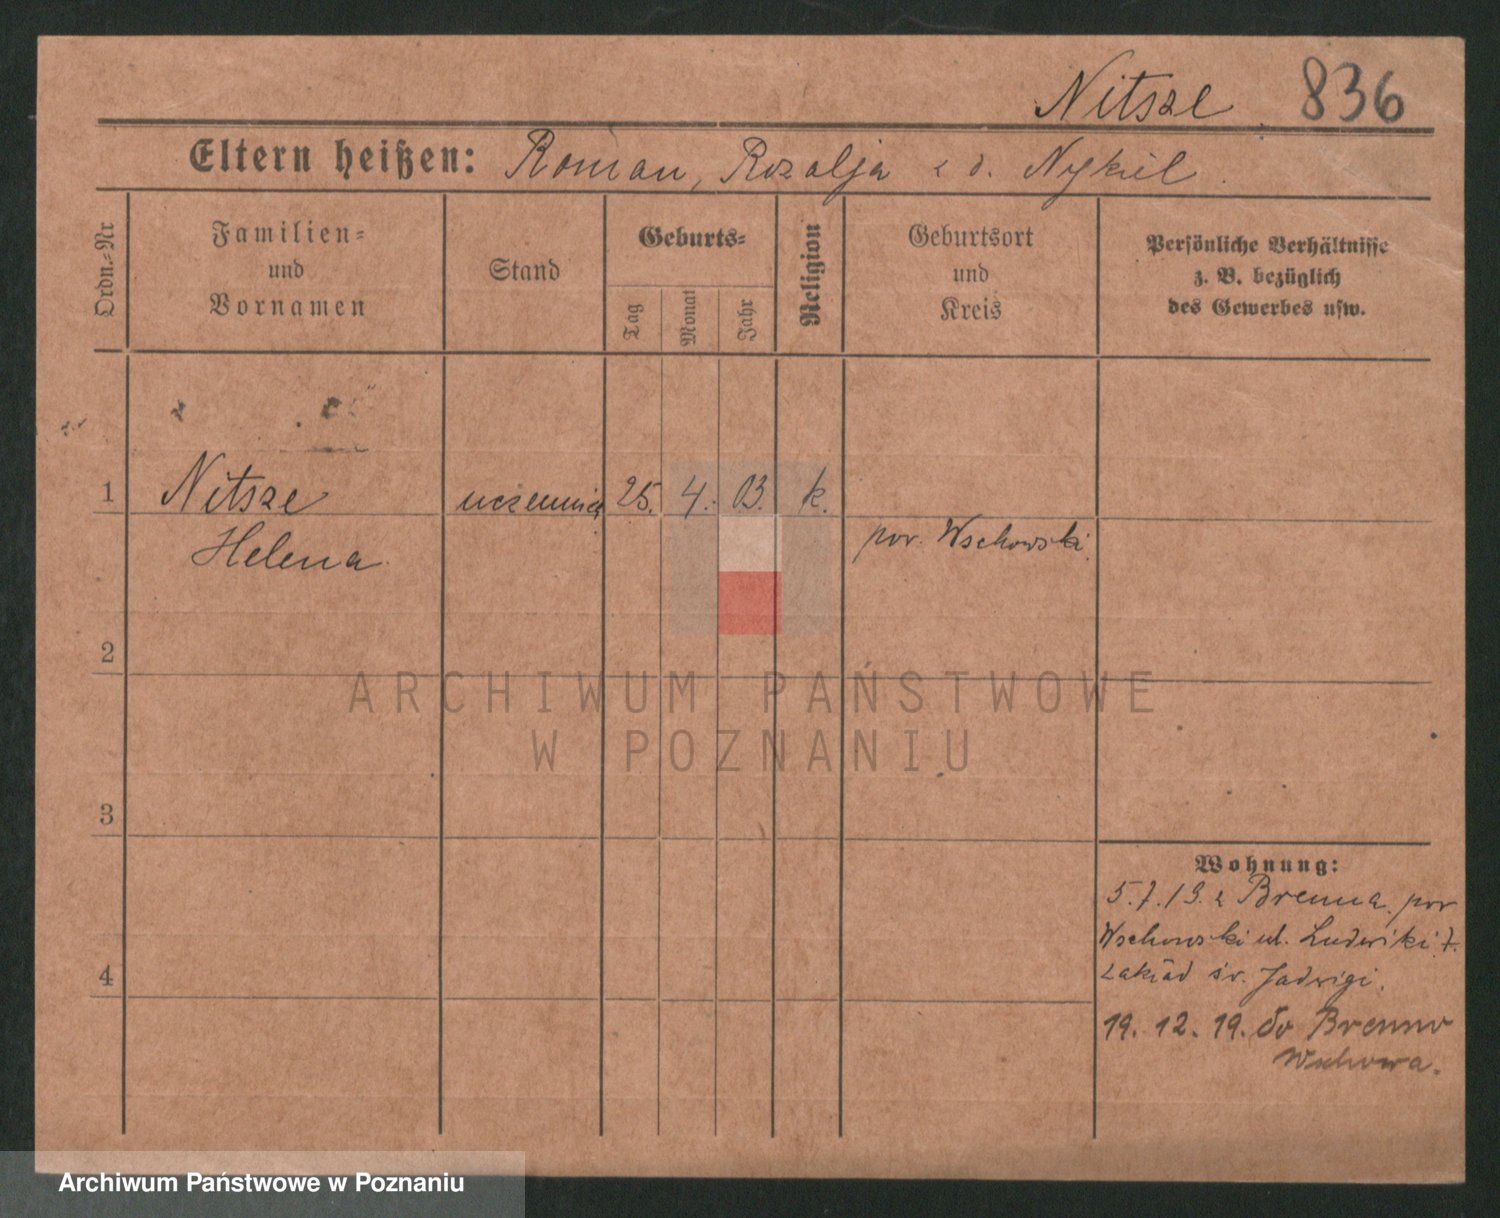 Nitsze 836
Eltern heißen: Roman, Rozalja z d. Nykiel.
Ordn.-Nr
Familien-
und
Vornamen
Stand
Geburts-
Tag
Monat
Jahr
Religion
Geburtsort
und
Kreis
Persönliche Verhältnisse
z. B. bezüglich
des Gewerbes usw.
1 Nitsze uczennica 25. 4. 03. k.
Helena pow. Wschowski
2
ARCHIWUM PAŃSTWOWE
W POZNANIU
3
Wohnung:
5.7.19. z Brenna pow
Wschowski ul. Ludwiki 7.
zakład św. Jadwigi.
4
19. 12. 19. do Brenno
Wschowa.
Archiwum Państwowe w Poznaniu